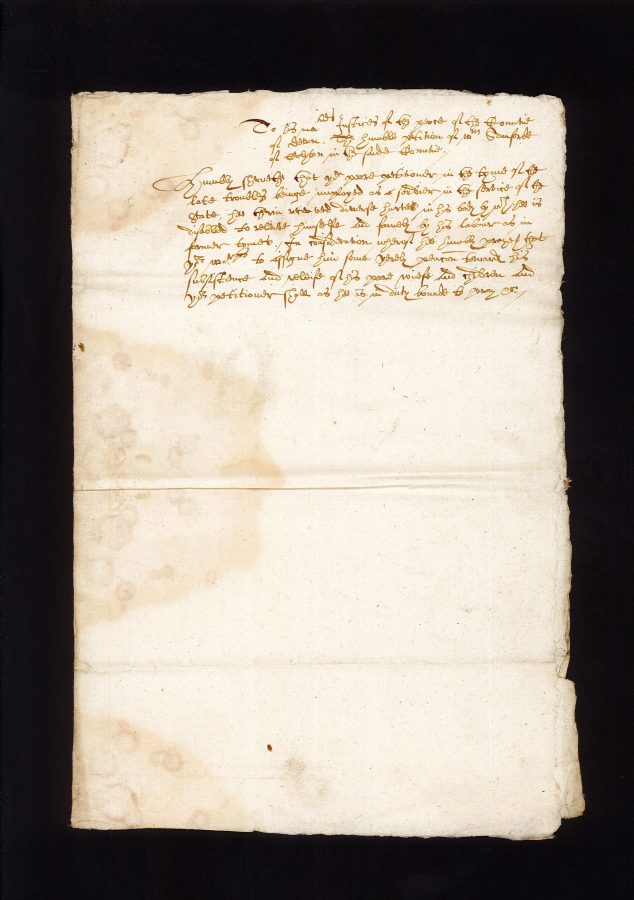 To his ma:ties Justices of the peace of the Countie
of Devon. The humble petition of Willm Samford
of in the saide Countie,
Humbly sheweth that yor poore petitioner in the tyme of the
late troubles beinge imployed as a soldier in the service of the
State, hee therin received diverse hurtes in his body by wch hee is
disabled to releeve himselfe and family by his labour as in
former tymes. In consideration wherof hee humbly prayes that
yor Worpps to assigne him some yerely pencon towards his
subsistence and releife of his poore wiefe and children and
yor petitioner shall as hee is in duty bounde to pray &c,